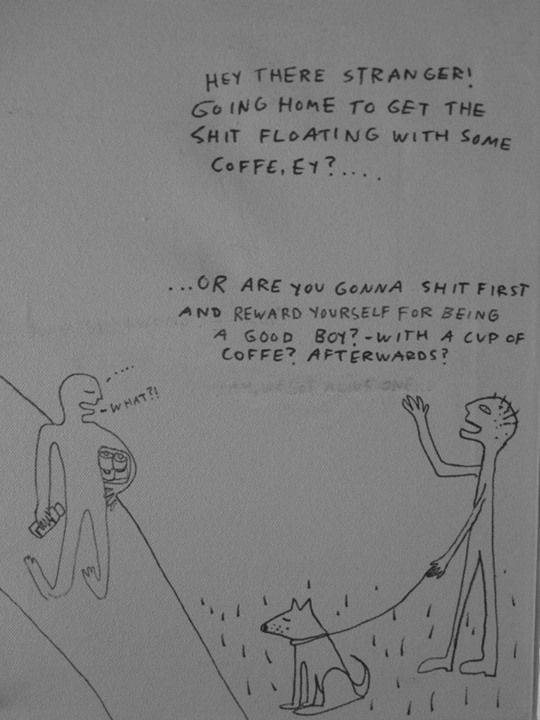 HEY THERE STRANGER!
GOING HOME TO GET THE
SHIT FLOATING WITH SOME
COFFE, EY?....
...OR ARE YOU GONNA SHIT FIRST
AND REWARD YOURSELF FOR BEING
A GOOD BOY?-WITH A CUP OF
COFFE? AFTERWARDS?
.....
-WHAT?!